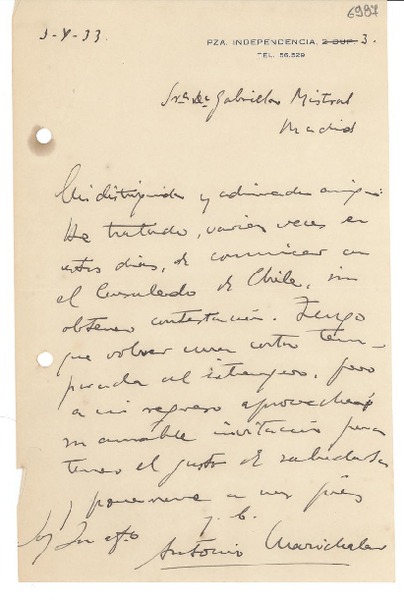 6987
3-X-33
PZA. INDEPENDENCIA, 2 DUP 3.
TEL. 56.529
Srª. Dª. Gabriela Mistral
Madrid
Mi distinguida y admirada amiga:
He tratado, varias veces en
estos dias, de comunicar con
el Consulado de Chile, sin
obtener contestación. Tengo
que volver una corta tem-
porada al extrangero, pero
a mi regreso aprovecharé
su amable invitación para
tener el gusto de saludarla
y ponerme a sus pies
Soy su afto
Antonio Marichalar